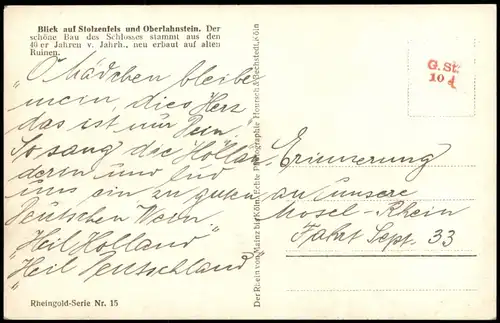 Blick auf Stolzenfels und Oberlahnstein. Der
schöne Bau des Schlosses stammt aus den
40 er Jahren v. Jahrh., neu erbaut auf alten
Ruinen.
"O Mädchen bleibe
mein, dies Herz
das ist nur Dein."
So sang die Hollän-
derin und lud
uns ein zu guten
Deutschen Wein
"Heil Holland"
"Heil Deutschland"
Rheingold-Serie Nr. 15
Der Rhein von Mainz bis Köln. Echte Photographie Hoursch & Bechstedt, Köln
G. St.
10 d
Erinnerung
an unsere
Mosel-Rhein
Fahrt Sept. 33